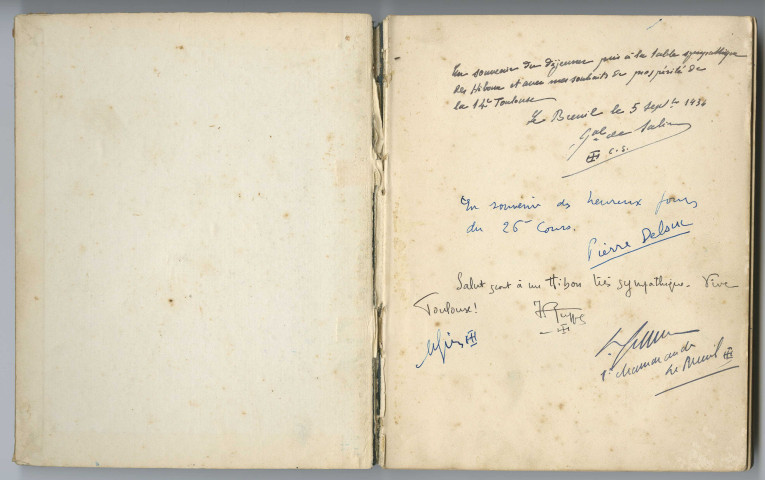 En souvenir du déjeuner pris à la table sympathique
des Hiboux et avec mes souhaits de prospérité de
la 14e Toulouse
Le Breuil le 5 Septbre 1934
Gal de Salins
C. S.
En souvenir des heureux jours
du 26e Cours.
Pierre Delsuc
Salut scout à un Hibou très sympathique. Vive
Toulouse!
1e Marmande
Le Breuil